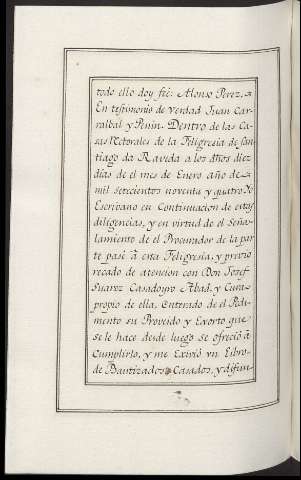 todo ello doy feé: Alonso Perez.
En testimonio de verdad Juan Car-
ralbal y Penin. Dentro de las Ca-
sas Rectorales de la Feligresia de San-
tiago da Raveda a los dias diez
dias de el mes de Enero año de
mil setecientos noventa y quatro Yo
Escribano en Continuacion de estas
diligencias, y en virtud de el Seña-
lamiento de el Procurador de la par-
te pasé à esta Feligresia, y previo
recado de atencion con Don Josef
Suarez Casadoyro Abad, y Cura
propio de ella, Enterado de el Pedi-
mento su Proveido y Exorto que
se le hace desde luego se ofreció à
Cumplirlo, y me Exivió vn Libro
de Bautizados Casados, y difun-